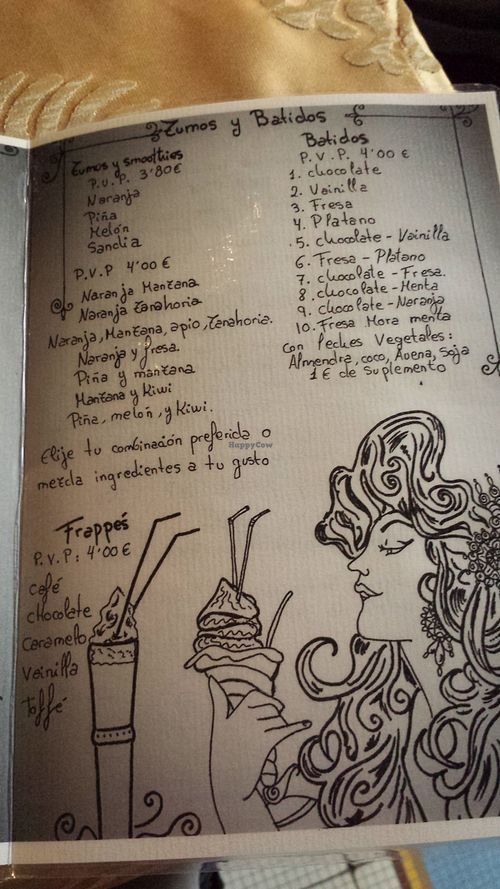 Zumos y Batidos
Zumos y smoothies
P.V.P. 3'80€
Naranja
Piña
Melón
Sandia
P.V.P 4'00€
Naranja Manzana
Naranja Zanahoria
Naranja, Manzana, apio, Zanahoria.
Naranja y fresa.
Piña y manzana
Manzana y Kiwi
Piña, melon, y Kiwi.
Elije tu combinación preferida o
mezcla ingredientes a tu gusto
Batidos
P.V.P. 4'00 €
1. chocolate
2. Vainilla
3. Fresa
4. Platano
5. chocolate - Vainilla
6. Fresa - Platano
7. chocolate - Fresa.
8. chocolate - Menta
9. chocolate - Naranja
10. Fresa Mora menta
Con leches Vegetales:
Almendra, coco, Avena, Soja
1€ de suplemento
HappyCow
Frappes
P.V.P: 4'00€
café
chocolate
Caramelo
Vainilla
Toffé